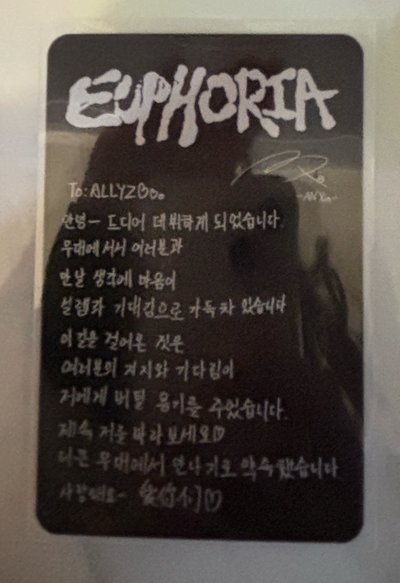 EUPHORIA
To: ALLYZ
안녕~ 드디어 데뷔하게 되었습니다.
무대에 서서 여러분과
만날 생각에 마음이
설렘과 기대감으로 가득 차 있습니다
이 길을 걸어온 것은
여러분의 지지와 기다림이
저에게 버틸 용기를 주었습니다.
계속 저를 바라보세요♡
더 큰 무대에서 만나기로 약속했습니다.
사랑해요~ ♡